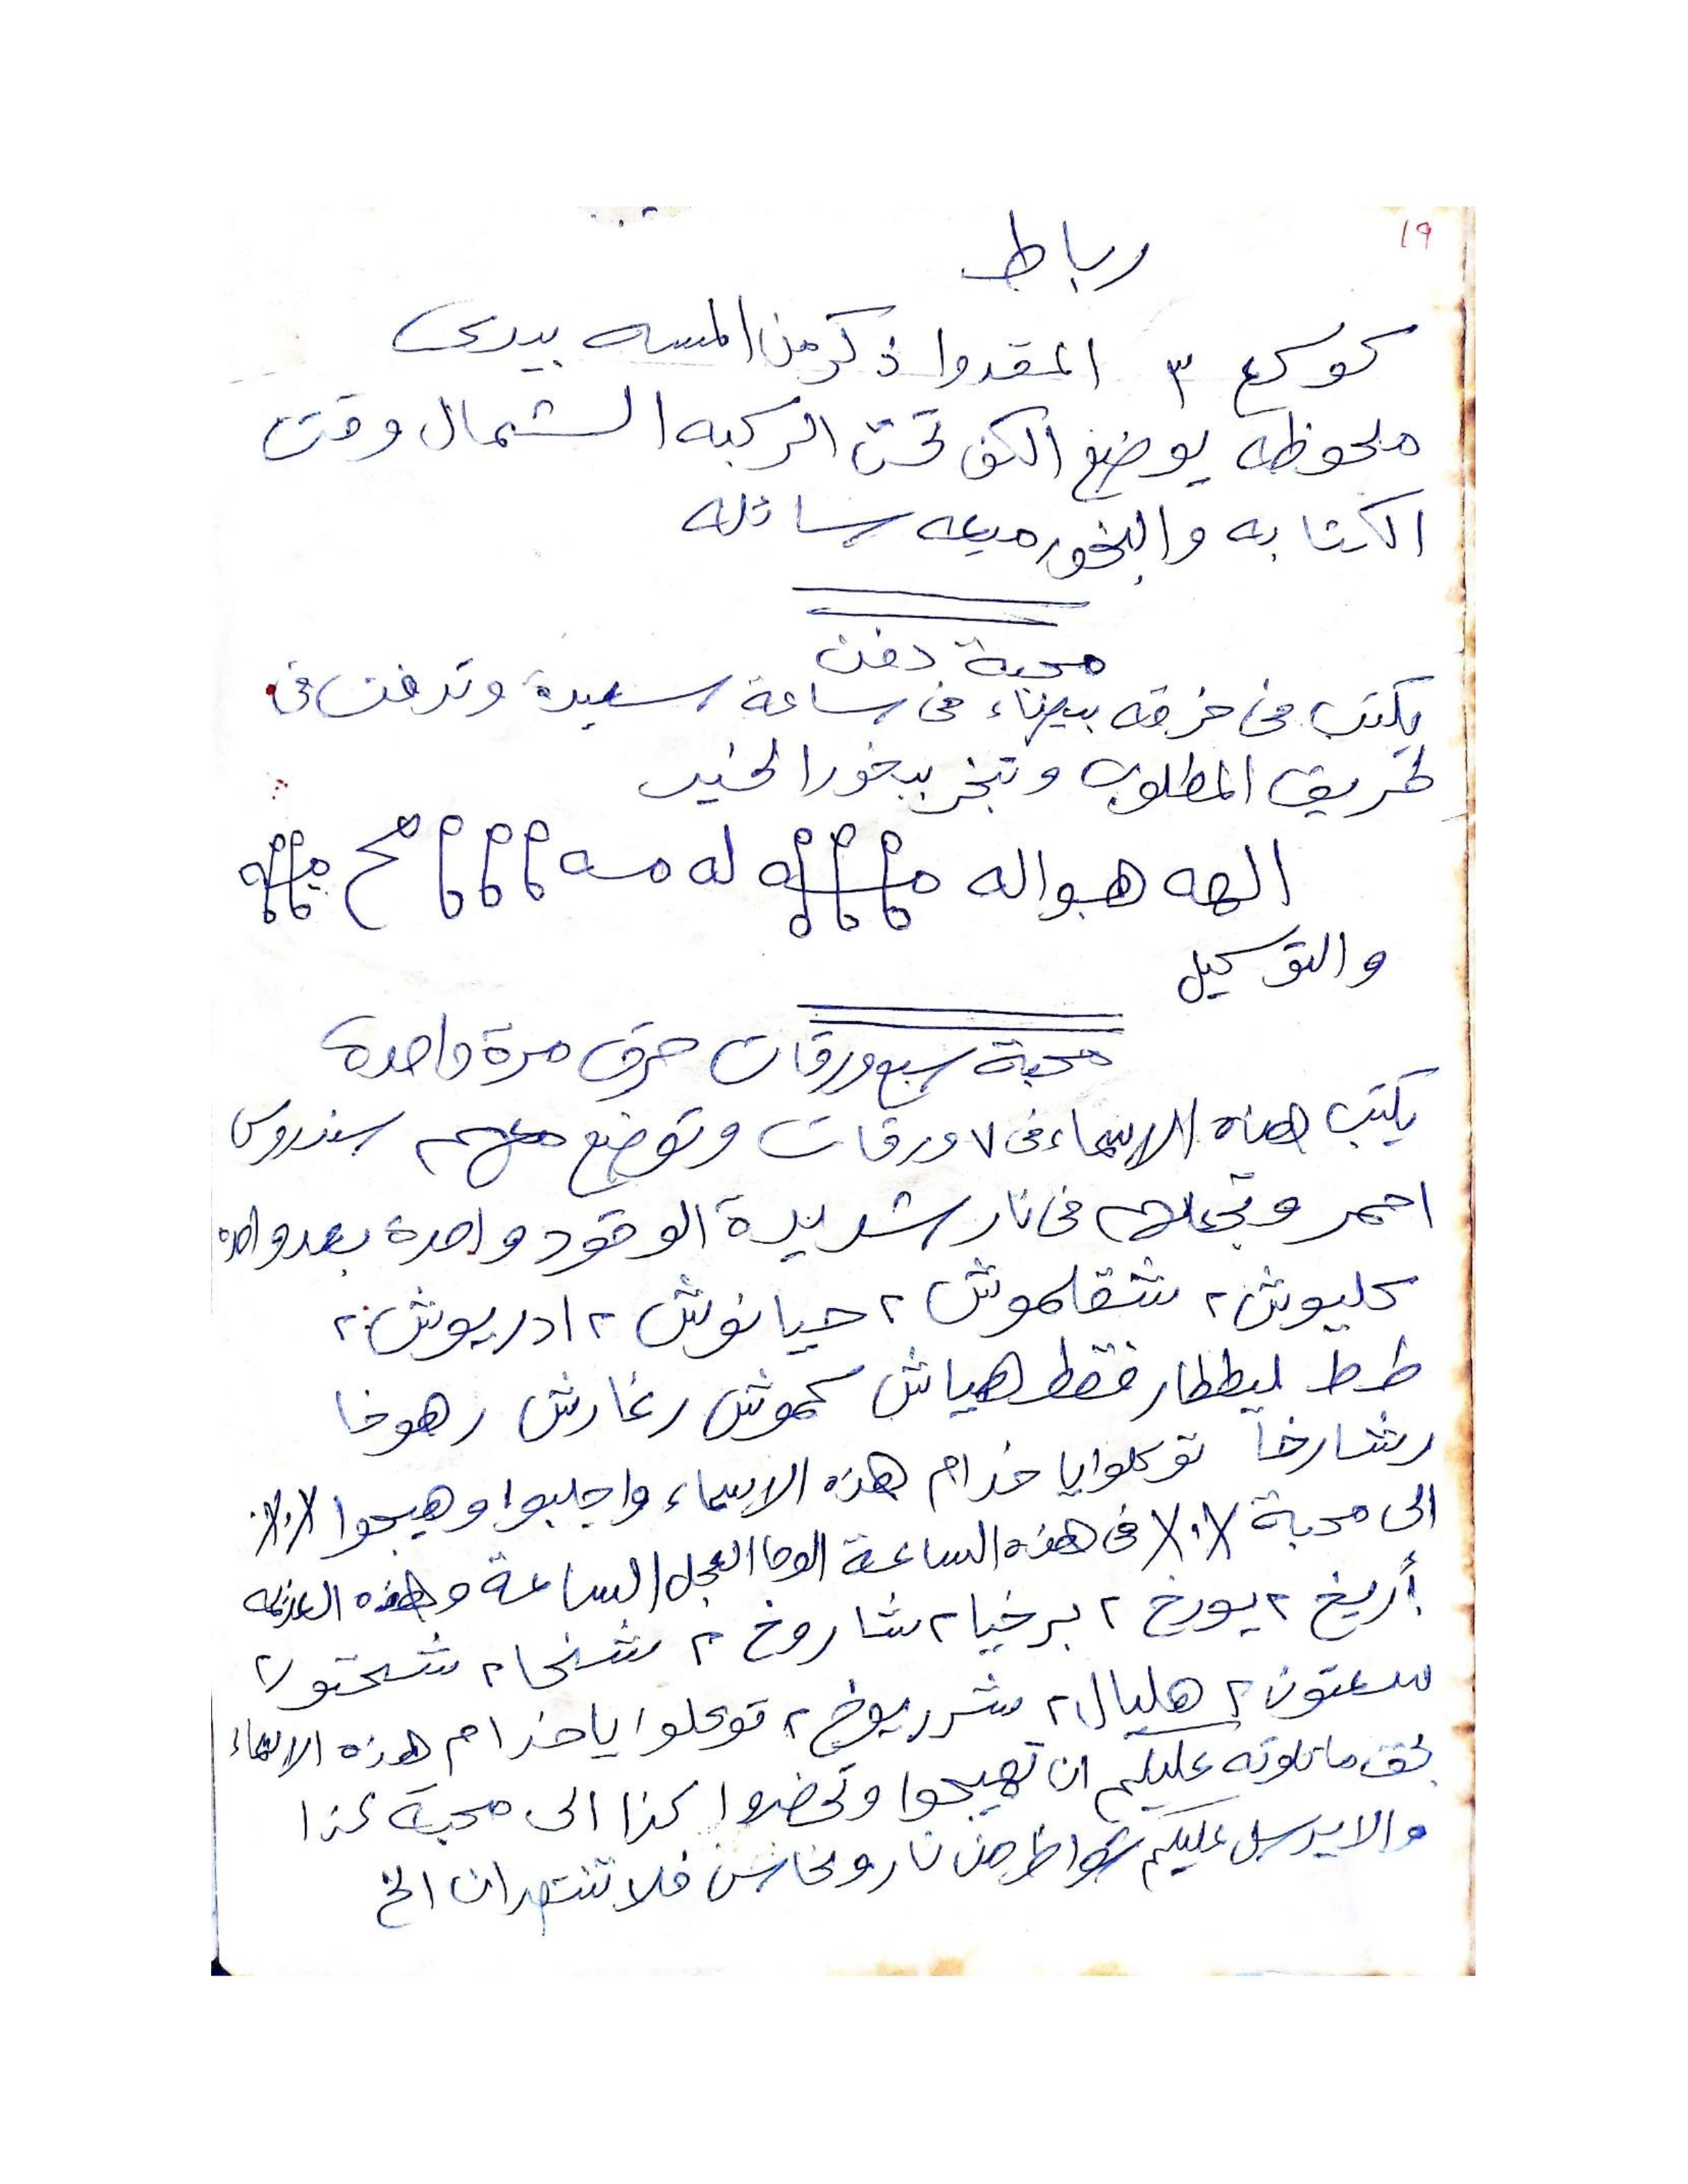 ١٩
رباط
كوكع ٣ المقدوا ذكر من المسه بيدى
ملحوظه يوضع الكف تحت الركبه الشمال وقت
الكتابه والبخور ميعه سائله
محبة دفن
يكتب فى خرقه بيضاء فى ساعة سعيدة وتدفن فى
طريق المطلوب وتبخر ببخور الخير
الهه هواله له مسه
والتوكيل
محبة سبع ورقات حرق مرة واحدة
يكتب هذه الاسماء فى ٧ ورقات وتوضع معهم سندروس
احمر وتجعلهم فى نار شديدة الوقود واحدة بعد واحده
كليوش ٢ شقلموش ٢ حيانوش ٢ ادريوش ٢
طط ليططار فقط هياش كموش رغارش رهوخا
رشارخا توكلوا يا خدام هذه الاسماء واجلبوا وهيجوا X.X
الى محبة X.X فى هذه الساعة الوحا العجل الساعة وهذه العزيمه
أريخ ٢ يورخ ٢ برخيا ٢ شاروخ ٢ شنخا ٢ شختو ٢
سعتون ٢ هليال ٢ شرريوخ ٢ توكلوا يا خدام هذه الاسماء
بحق ما تلوته عليكم ان تهيجوا وتحضروا كذا الى محبة كذا
والا يرسل عليكم شواظ من نار ونحاس فلا تنتصران الخ